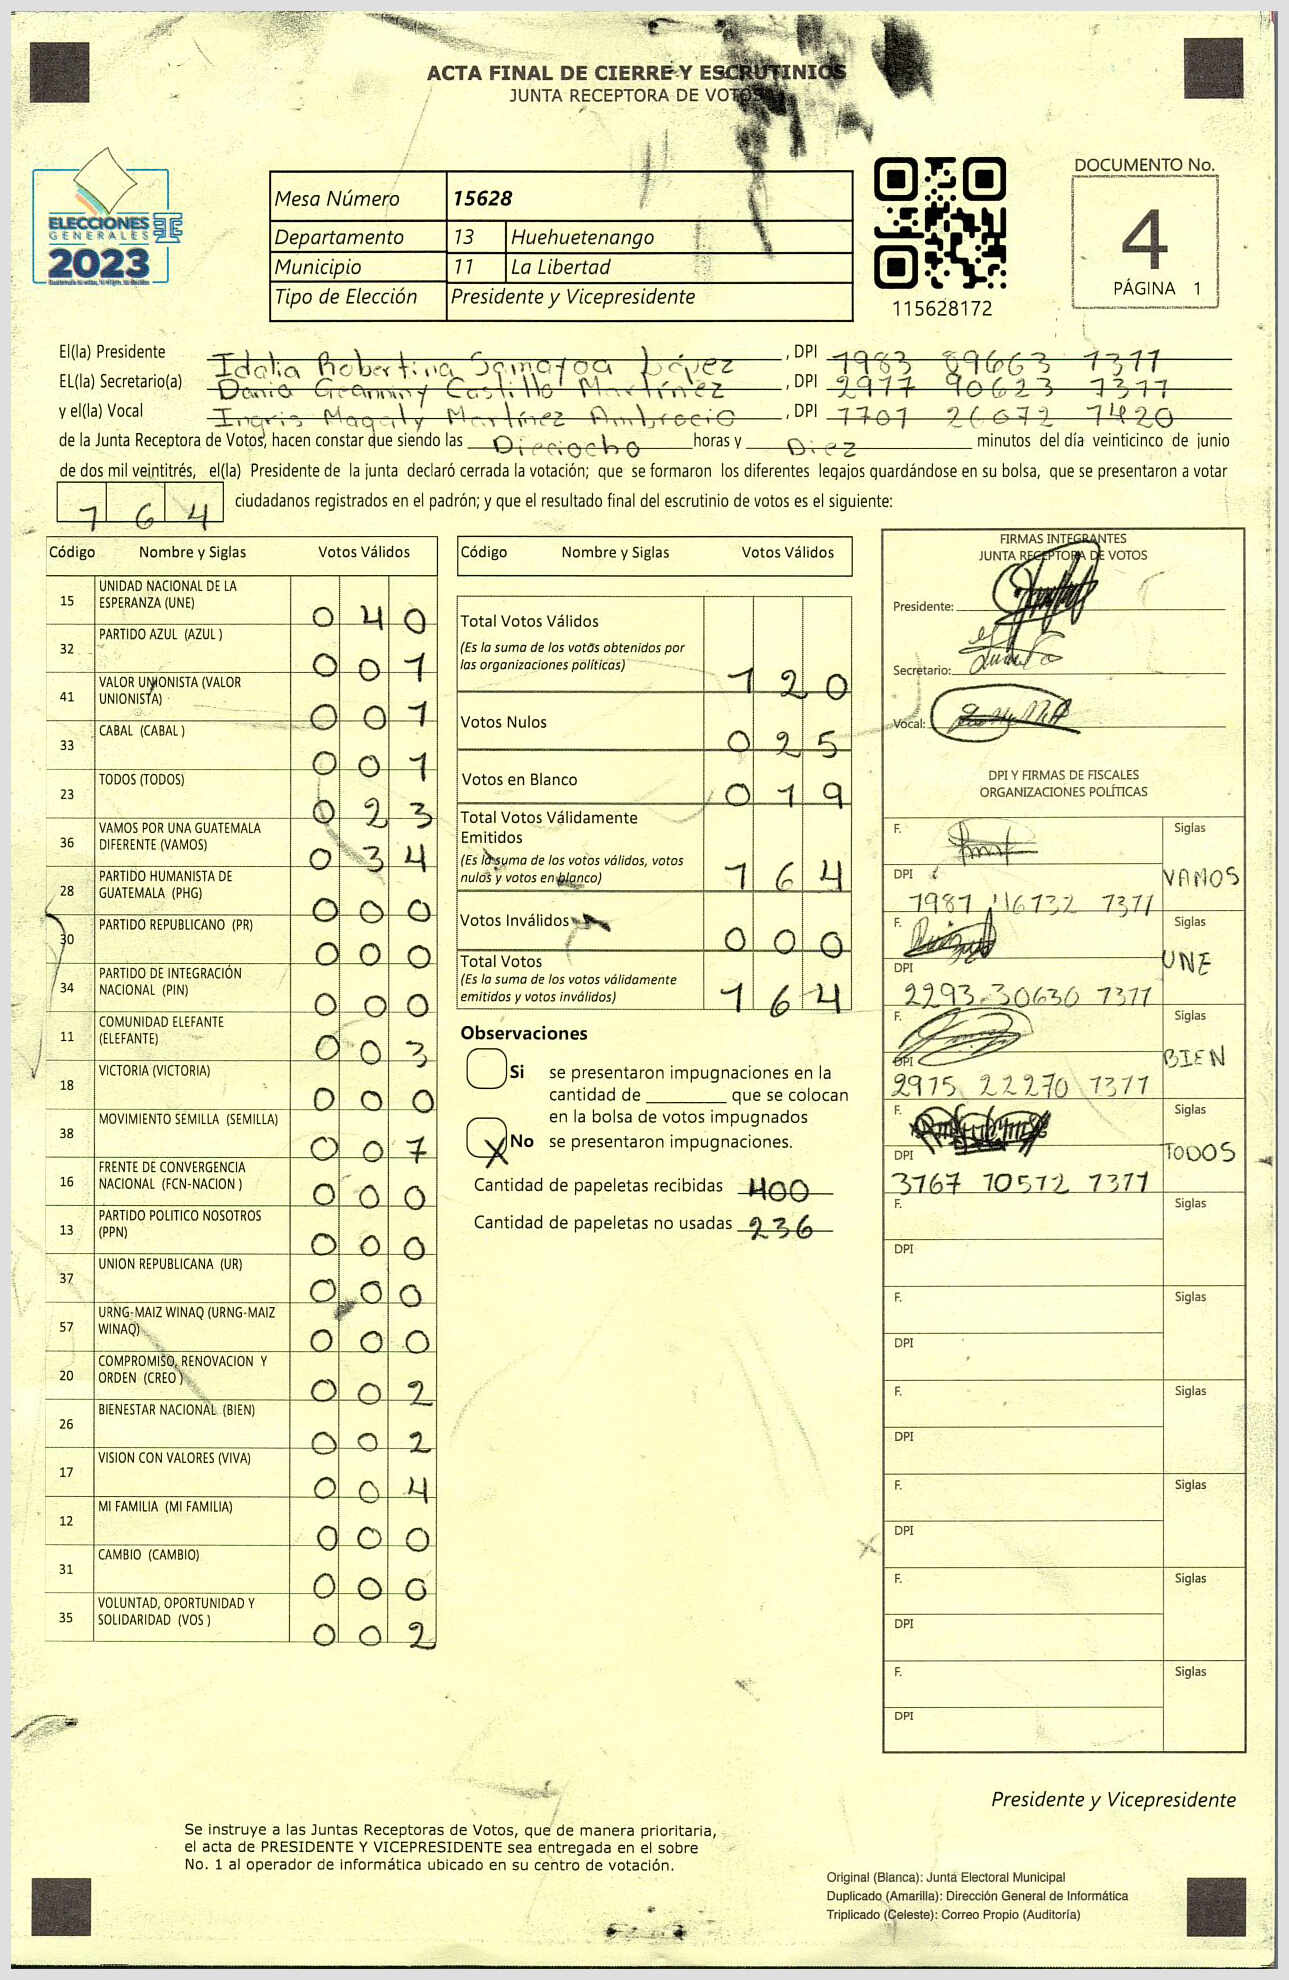 ACTA FINAL DE CIERRE Y ESCRUTINIOS
JUNTA RECEPTORA DE VOTOS
ELECCIONES
GENERALES
2023
Mesa Número 15628
Departamento 13 Huehuetenango
Municipio 11 La Libertad
Tipo de Elección Presidente y Vicepresidente
115628172
DOCUMENTO No.
4
PÁGINA 1
El(la) Presidente Idalia Robertina Samayoa López , DPI 1983 89663 1311
EL(la) Secretario(a) Dania Geanniny Castillo Martínez , DPI 2977 90623 1311
y el(la) Vocal Ingris Magaly Martínez Ambrocio , DPI 1701 26072 1420
de la Junta Receptora de Votos, hacen constar que siendo las Dieciocho horas y Diez minutos del día veinticinco de junio
de dos mil veintitrés, el(la) Presidente de la junta declaró cerrada la votación; que se formaron los diferentes legajos guardándose en su bolsa, que se presentaron a votar
1 6 4 ciudadanos registrados en el padrón; y que el resultado final del escrutinio de votos es el siguiente:
Código Nombre y Siglas Votos Válidos
15 UNIDAD NACIONAL DE LA ESPERANZA (UNE) 0 4 0
32 PARTIDO AZUL (AZUL ) 0 0 1
41 VALOR UNIONISTA (VALOR UNIONISTA) 0 0 1
33 CABAL (CABAL ) 0 0 1
23 TODOS (TODOS) 0 2 3
36 VAMOS POR UNA GUATEMALA DIFERENTE (VAMOS) 0 3 4
28 PARTIDO HUMANISTA DE GUATEMALA (PHG) 0 0 0
30 PARTIDO REPUBLICANO (PR) 0 0 0
34 PARTIDO DE INTEGRACIÓN NACIONAL (PIN) 0 0 0
11 COMUNIDAD ELEFANTE (ELEFANTE) 0 0 3
18 VICTORIA (VICTORIA) 0 0 0
38 MOVIMIENTO SEMILLA (SEMILLA) 0 0 7
16 FRENTE DE CONVERGENCIA NACIONAL (FCN-NACION ) 0 0 0
13 PARTIDO POLITICO NOSOTROS (PPN) 0 0 0
37 UNION REPUBLICANA (UR) 0 0 0
57 URNG-MAIZ WINAQ (URNG-MAIZ WINAQ) 0 0 0
20 COMPROMISO, RENOVACION Y ORDEN (CREO ) 0 0 2
26 BIENESTAR NACIONAL (BIEN) 0 0 2
17 VISION CON VALORES (VIVA) 0 0 4
12 MI FAMILIA (MI FAMILIA) 0 0 0
31 CAMBIO (CAMBIO) 0 0 0
35 VOLUNTAD, OPORTUNIDAD Y SOLIDARIDAD (VOS ) 0 0 2
Código Nombre y Siglas Votos Válidos
Total Votos Válidos
(Es la suma de los votos obtenidos por
las organizaciones políticas) 1 2 0
Votos Nulos 0 2 5
Votos en Blanco 0 1 9
Total Votos Válidamente
Emitidos
(Es la suma de los votos válidos, votos
nulos y votos en blanco) 1 6 4
Votos Inválidos 0 0 0
Total Votos
(Es la suma de los votos válidamente
emitidos y votos inválidos) 1 6 4
Observaciones
Si se presentaron impugnaciones en la
cantidad de ________ que se colocan
en la bolsa de votos impugnados
X No se presentaron impugnaciones.
Cantidad de papeletas recibidas 400
Cantidad de papeletas no usadas 236
FIRMAS INTEGRANTES
JUNTA RECEPTORA DE VOTOS
Presidente:
Secretario:
Vocal:
DPI Y FIRMAS DE FISCALES
ORGANIZACIONES POLÍTICAS
F. Siglas
VAMOS
DPI 1987 16732 1311
F. Siglas
UNE
DPI 2293 30630 1311
F. Siglas
BIEN
DPI 2975 22270 1311
F. Siglas
TODOS
DPI 3167 10512 1311
F. Siglas
DPI
F. Siglas
DPI
F. Siglas
DPI
F. Siglas
DPI
F. Siglas
DPI
F. Siglas
DPI
Presidente y Vicepresidente
Se instruye a las Juntas Receptoras de Votos, que de manera prioritaria,
el acta de PRESIDENTE Y VICEPRESIDENTE sea entregada en el sobre
No. 1 al operador de informática ubicado en su centro de votación.
Original (Blanca): Junta Electoral Municipal
Duplicado (Amarilla): Dirección General de Informática
Triplicado (Celeste): Correo Propio (Auditoría)